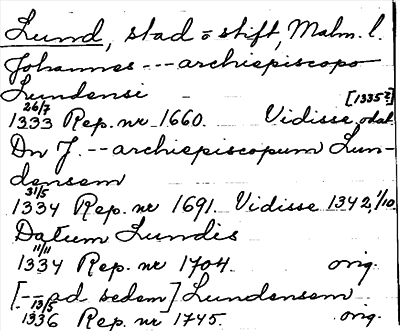 Lund, stad o stift, Malm. l.
Johannes --- archiepiscopo
Lundensi - [1335?]
26/7
1333 Rep. nr 1660. Vidisse, odat.
Dn J. -- archiepiscopum Lun-
densem
31/5
1334 Rep. nr 1691. Vidisse 1342, 1/10.
Datum Lundis
11/11
1334 Rep. nr 1704. orig.
[-- ad sedem] Lundensem
13/5
1336 Rep. nr 1745. orig.